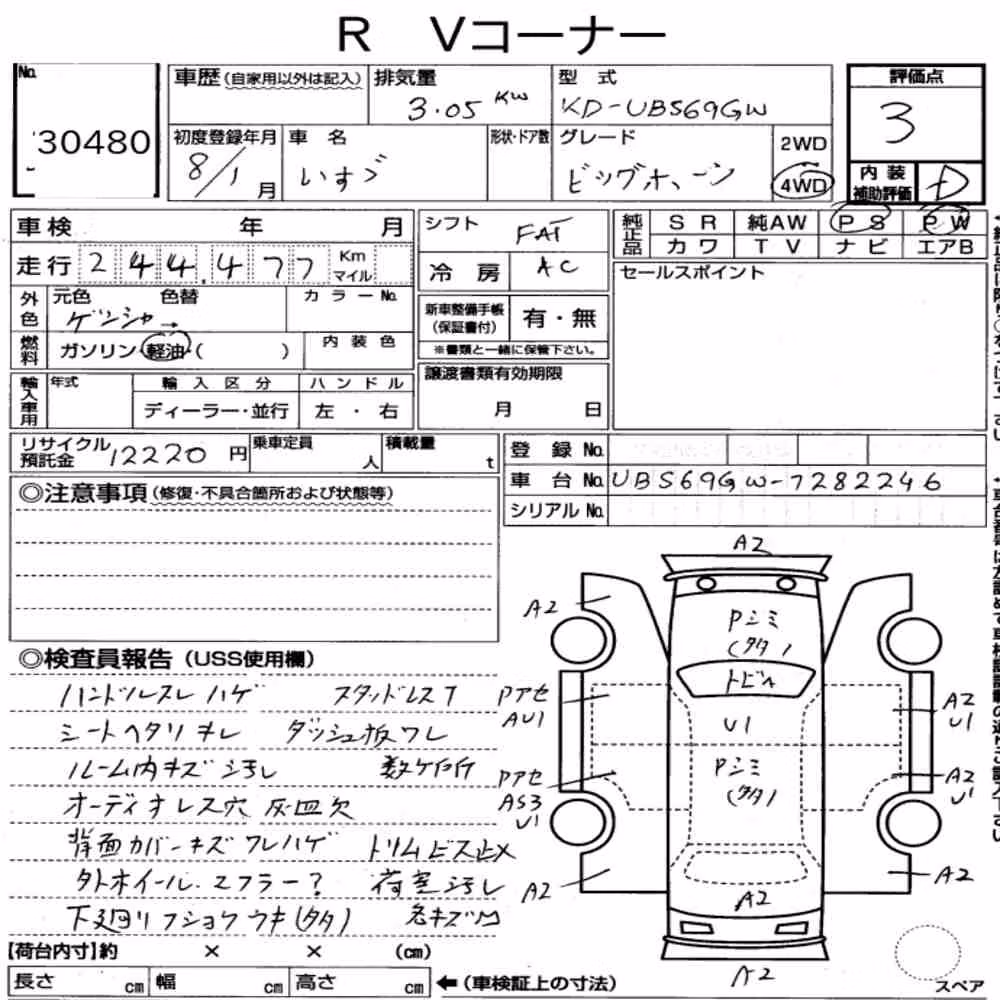 R Vコーナー
No. 30480
車歴(自家用以外は記入)
排気量 3.05 KW
型式 KD-UBS69GW
評価点 3
初度登録年月 8/1月
車名 いすゞ
形状・ドア数
グレード ビッグホーン
2WD
4WD
内装補助評価 D
車検 年 月
走行 244,477 Km マイル
外色 元色 色替 カラーNo.
ゲンシャ→
燃料 ガソリン・軽油・( )
内装色
輸入車用 年式 輸入区分 ハンドル
ディーラー・並行 左・右
シフト FAT
冷房 AC
新車整備手帳(保証書付) 有・無
※書類と一緒に保管下さい。
譲渡書類有効期限
月 日
純正品 SR 純AW PS PW
カワ TV ナビ エアB
セールスポイント
リサイクル預託金 12220円
乗車定員 人
積載量 t
登録No.
車台No. UBS69GW-7282246
シリアルNo.
◎注意事項(修復・不具合箇所および状態等)
◎検査員報告(USS使用欄)
ハンドルスレ ハゲ スタッドレスT
シートヘタリキレ ダッシュ板ワレ
ルーム内キズ汚れ 数ケ所
オーディオレス穴 灰皿欠
背面カバーキズワレハゲ トリムビス止メ
外ホイール、マフラー? 荷室汚レ
下廻リフショクウキ(タタ) 各キズ凹
A2
A2
Pシミ
(タタ)
トビA
Pアセ
AU1
U1
A2
U1
Pシミ
(タタ)
Pアセ
AS3
U1
A2
U1
A2
A2
A2
A2
【荷台内寸】約 × × (cm)
長さ cm 幅 cm 高さ cm
←(車検証上の寸法)
スペア